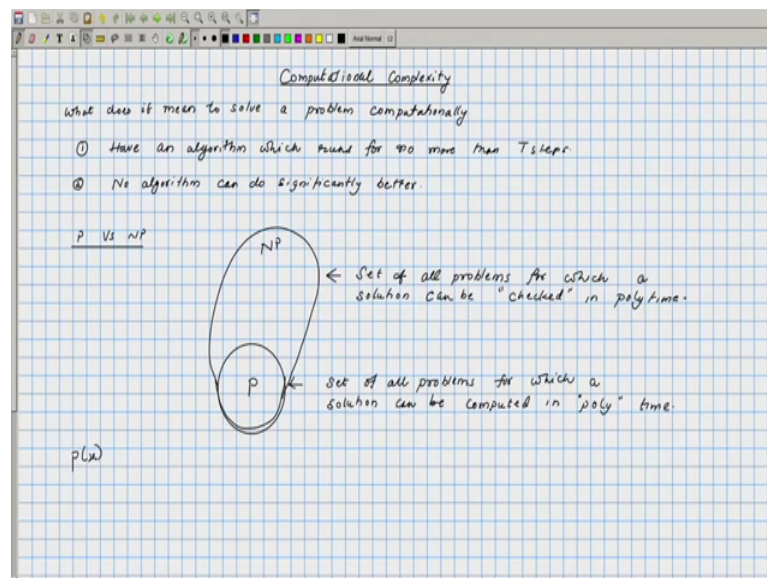 Arial Normal 12
Computational Complexity
What does it mean to solve a problem computationally
① Have an algorithm which runs for no more than T steps.
② No algorithm can do significantly better.
P Vs NP
NP
← Set of all problems for which a
solution can be "checked" in poly time.
P
← Set of all problems for which a
solution can be computed in "poly" time.
p(x)